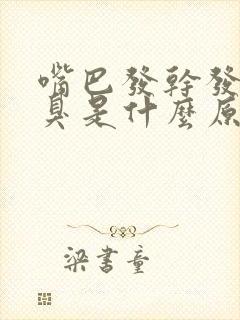 嘴巴發幹發
臭是什麼原
梁書童